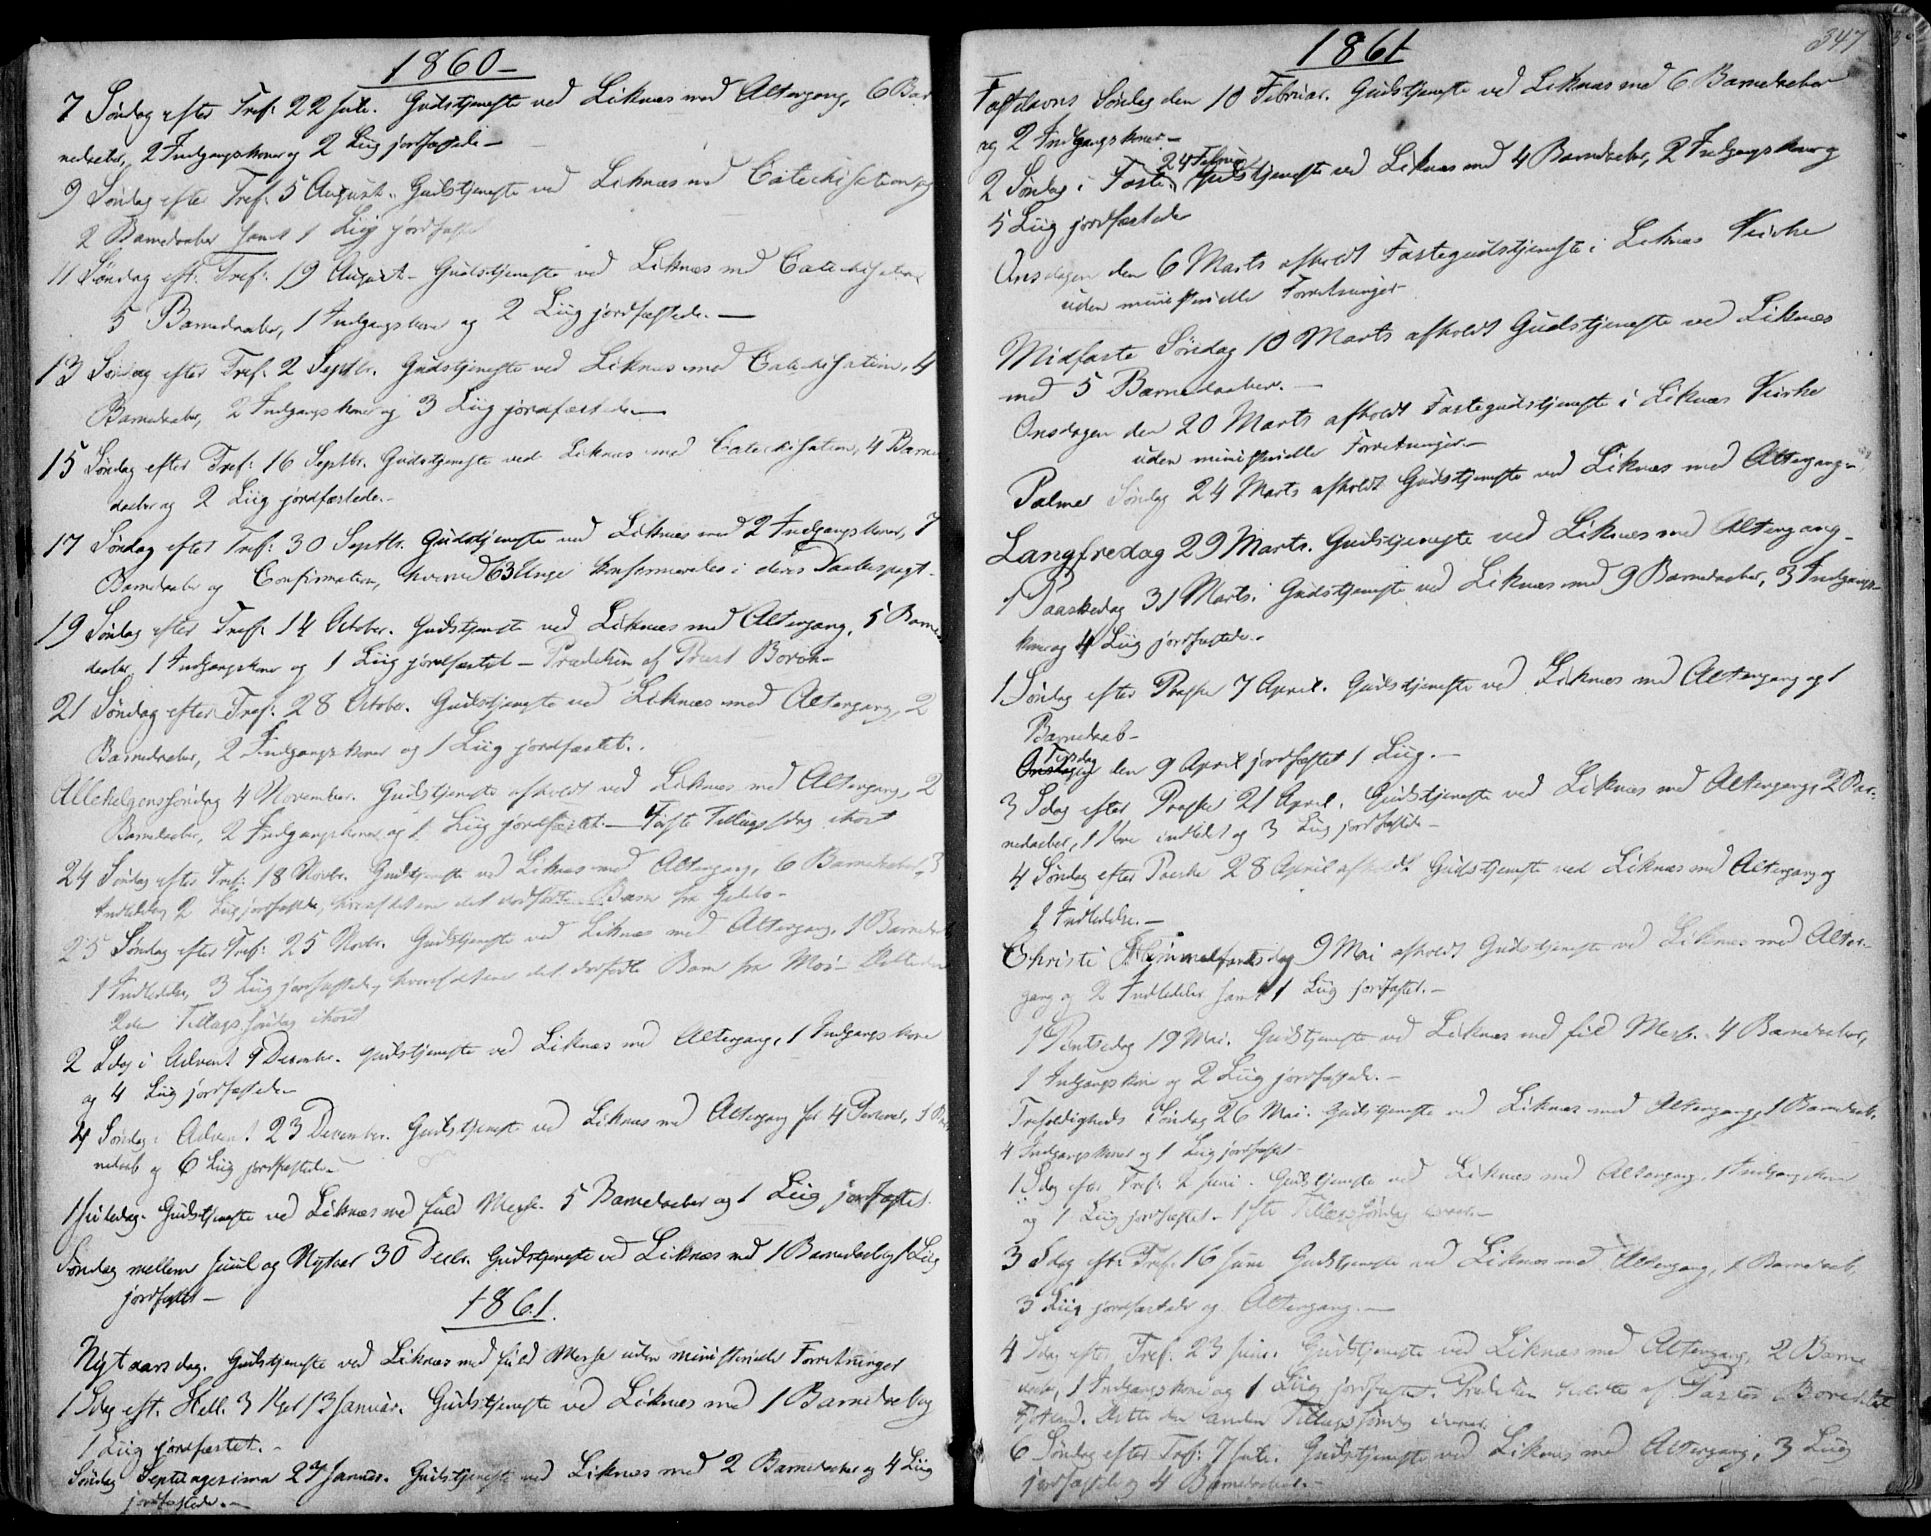 1860
7 Søndag efter Tref: 22 Juli. Gudstjeneste ved Liknes med Altergang, 6 Bar
nedaaber, 2 Indgangskoner og 2 Liig jordfæstede
9 Søndag efter Tref: 5 August. Gudstjeneste ved Liknes med Catechisation og
2 Barnedaaber samt 1 Liig jordfæstet
11 Søndag eft: Tref: 19 August. Gudstjeneste ved Liknes md Catechisation
5 Barnedaaber, 1 Indgangskone og 2 Liig jordfæstede.
13 Søndag efter Tref. 2 Septbr. Gudstjeneste ved Liknes med Catechisation, 4
Barnedaaber, 2 Indgangskoner og 3 Liig jordfæstede
15 Søndag efter Tref: 16 Septbr. Gudstjeneste ved Liknes med Catechisation, 4 Barne
daaber og 2 Liig jordfæstede.
17 Søndag efter Tref: 30 Septbr. Gudstjeneste ved Liknes med 2 Indgangskoner, 7
Barnedaaber og Confirmation, hvorved 63 Unge konfirmeredes i deres Daabespagt.
19 Søndag efter Tref: 14 October. Gudstjeneste ved Liknes med Altergang, 5 Barne
daaber, 1 Indgangskone og 1 Liig jordfæstet - Prædiken af Præst
21 Søndag efter Tref: 28 October. Gudstjeneste ved Liknes med Altergang, 2
Barnedaaber, 2 Indgangskoner og 1 Liig jordfæstet.
Allehelgenssøndag 4 November. Gudstjeneste afholdt ved Liknes med Altergang, 2
Barnedaaber, 2 Indgangskoner og 1 Liig jordfæstet. Første Tillægsdag
24 Søndag efter Tref: 18 Novbr. Gudstjeneste ved Liknes med Altergang, 6 Barnedaaber, 3
2 Liig jordfæstede, hvoraf det ene det dødfødte Barn fra
25 Søndag efter Tref: 25 Novbr. Gudstjeneste ved Liknes med Altergang, 1 Barnedaab
1 Indledelse, 3 Liig jordfæstede, hvoraf det ene det dødfødte Barn fra Moi
2den Tillægssøndag
2 Sdag i Advent 9 Decembr. Gudstjeneste ved Liknes med Altergang, 1 Indgangskone
og 4 Liig jordfæstede
4 Søndag i Advent 23 December. Gudstjeneste ved Liknes med Altergang for 4 Personer, 1 Bar
nedaab og 6 Liig jordfæstede
1 Juledag. Gudstjeneste ved Liknes med fuld Messe. 5 Barnedaaber og 1 Liig jordfæstet.
Søndag mellem Juul og Nytaar 30 Decbr. Gudstjeneste ved Liknes md 1 Barnedaab og 1 Liig
jordfæstet
1861.
Nytaarsdag. Gudstjeneste ved Liknes med fuld Messe uden ministerielle Forretninger
1 Sdag eft. Hell. 3 Kgr 13 Januar. Gudstjeneste ved Liknes med 1 Barnedaab og
1 Liig jordfæstet.
Søndag Septuagesima 27 Januar. Gudstjeneste ved Liknes med 2 Barnedaaber og 4 Liig
jordfæstede.
1861
347
Fastelavns Søndag den 10 Februar. Gudstjeneste ved Liknes med 6 Barnedaaber
og 2 Indgangskoner
2 Søndag i Faste 24 Februar Gudstjeneste ved Liknes med 4 Barnedaaber, 2 Indgangskoner og
5 Liig jordfæstede
Onsdagen den 6 Marts afholdt Fastegudstjeneste i Liknes Kirke
uden ministerielle Forretninger
Midfaste Søndag 10 Marts afholdt Gudstjeneste ved Liknes
med 5 Barnedaaber.
Onsdagen den 20 Marts afholdt Fastegudstjeneste i Liknes Kirke
uden ministerielle Forretninger
Palme Søndag 24 Marts afholdt Gudstjeneste ved Liknes med Altergang
Langfredag 29 Marts. Gudstjeneste ved Liknes med Altergang
1 Paaskedag 31 Marts. Gudstjeneste ved Liknes med 9 Barnedaaber, 3 Indgangs
koner og 4 Liig jordfæstede.
1 Søndag efter Paaske 7 April. Gudstjeneste ved Liknes med Altergang og 1
Barnedaab
Tirsdag
Onsdagen den 9 April jordfæstet 1 Liig.
3 Sdag efter Paaske 21 April. Gudstjeneste ved Liknes med Altergang, 2 Bar-
nedaaber, 1 Kone indledet og 3 Liig jordfæstede
4 Søndag efter Paaske 28 April afholdt Gudstjeneste ved Liknes med Altergang og
1 Indledelse.
Christi Himmelfartsdag 9 Mai afholdt Gudstjeneste ved Liknes med Alter-
gang og 2 Indledelser samt 1 Liig jordfæstet.
1 Pintsedag 19 Mai. Gudstjeneste ved Liknes med fuld Messe. 4 Barnedaaber,
1 Indgangskone og 2 Liig jordfæstede.
Trefoldigheds Søndag 26 Mai. Gudstjeneste ved Liknes med Altergang, 1 Barnedaab,
4 Indgangskoner og 1 Liig jordfæstet
1 Sdag efter Tref: 2 Juni. Gudstjeneste ved Liknes med Altergang, 1 Indgangskone
og 1 Liig jordfæstet. 1ste Tillægssøndag
3 Sdag eft. Tref. 16 Juni Gudstjeneste ved Liknes med Altergang, 1 Barnedaab,
3 Liig jordfæstede og Altergang.
4 Sdag efter Tref: 23 Juni. Gudstjeneste ved Liknes med Altergang, 2 Barne
daaber, 1 Indgangskone og 1 Liig jordfæstet. Prædiken holdtes af Pastor
Fjotland. Dette den anden Tillægssøndag
6 Søndag efter Tref: 7 Juli. Gudstjeneste ved Liknes med Altergang, 3 Liig
jordfæstede og 4 Barnedaaber.